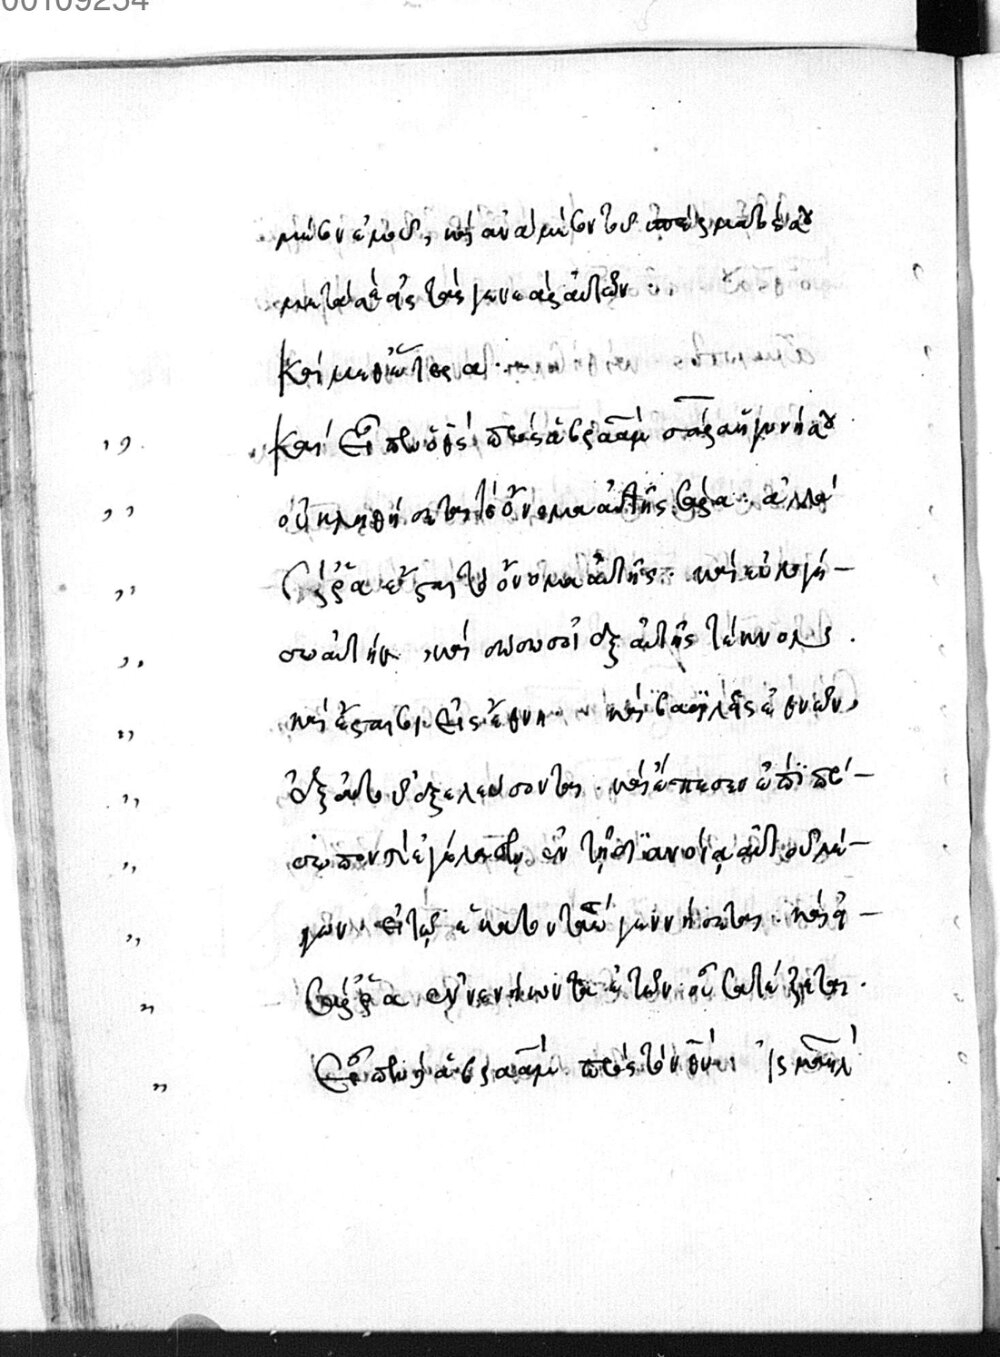 00109254
μέσον ἐμοῦ, καὶ ἀνὰ μέσον τοῦ σπέρματός σου
μετὰ σὲ εἰς τὰς γενεὰς αὐτῶν ·
Καὶ μεθ' ἕτερα ·
Καὶ εἶπεν ὁ θς πρὸς ἀβραάμ σάρα ἡ γυνή σου
οὐ κληθήσεται τὸ ὄνομα αὐτῆς σάρα · ἀλλὰ
Σάρρα ἔσται τὸ ὄνομα αὐτῆς · καὶ εὐλογή-
σω αὐτήν, καὶ δώσω σοι ἐξ αὐτῆς τέκνον ·
καὶ ἔσται εἰς ἔθνη · καὶ βασιλεῖς ἐθνῶν,
ἐξ αὐτοῦ ἐξελεύσονται · καὶ ἔπεσεν ἐπὶ πρό-
σωπον καὶ ἐγέλασεν ἐν τῇ διανοίᾳ αὐτοῦ λέ-
γων εἰ τῷ ἑκατονταετεῖ γεννήσεται · καὶ ἡ
Σάρρα ἐνενήκοντα ἐτῶν οὖσα τέξεται ·
Εἶπεν δὲ ἀβραάμ πρὸς τὸν θν · ἰσμαὴλ